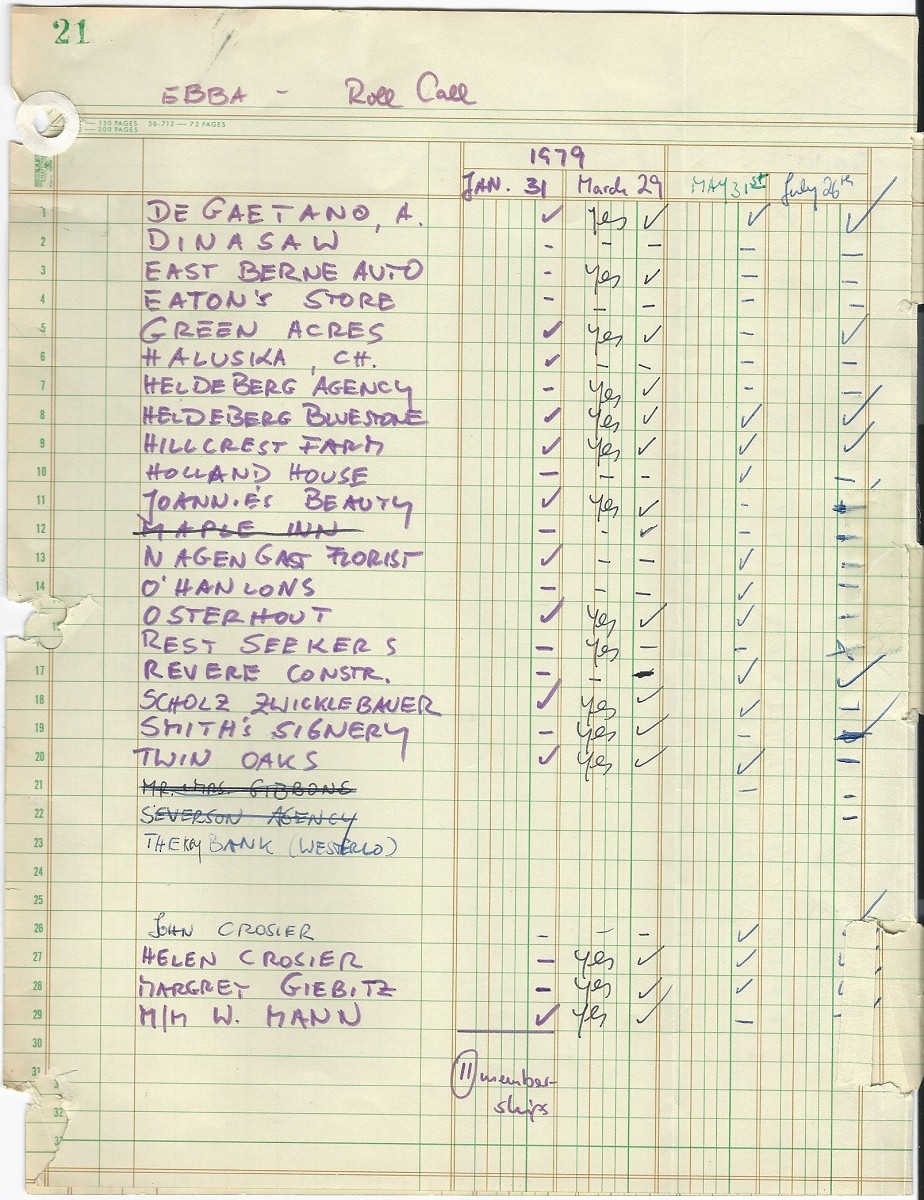 21
EBBA - Roll Call
150 PAGES 56-712 — 72 PAGES
300 PAGES
1979
JAN. 31 March 29 MAY 31st July 26th
1 DE GAETANO, A. ✓ yes ✓ ✓ ✓
2 DINASAW - - - - -
3 EAST BERNE AUTO - yes ✓ - -
4 EATON'S STORE - - - - -
5 GREEN ACRES ✓ yes ✓ - ✓
6 HALUSKA, CH. ✓ - - - -
7 HELDEBERG AGENCY - yes ✓ - -
8 HELDEBERG BLUESTONE ✓ yes ✓ ✓ ✓
9 HILLCREST FARM ✓ yes ✓ ✓ ✓
10 HOLLAND HOUSE - - - ✓ -
11 JOANN.E'S BEAUTY ✓ yes ✓ -
12 MAPLE INN - - ✓ - -
13 NAGENGAST FLORIST ✓ - - ✓ -
14 O'HANLONS - - - ✓ -
OSTERHOUT ✓ yes ✓ ✓ -
REST SEEKERS - yes - -
17 REVERE CONSTR. - - - ✓ ✓
18 SCHOLZ ZWICKLEBAUER ✓ yes ✓ ✓ -
19 SMITH'S SIGNERY - yes ✓ - ✓
20 TWIN OAKS ✓ yes ✓ ✓ -
21 MR. + MRS. GIBBONS - -
22 SEVERSON AGENCY -
23 THE KEY BANK (WESTERLO)
24
25
26 JOHN CROSIER - - - ✓
27 HELEN CROSIER - yes ✓ ✓
28 MARGRET GIEBITZ - yes ✓ ✓
29 M/M W. MANN ✓ yes ✓ -
30
31
11 member-
32 ships